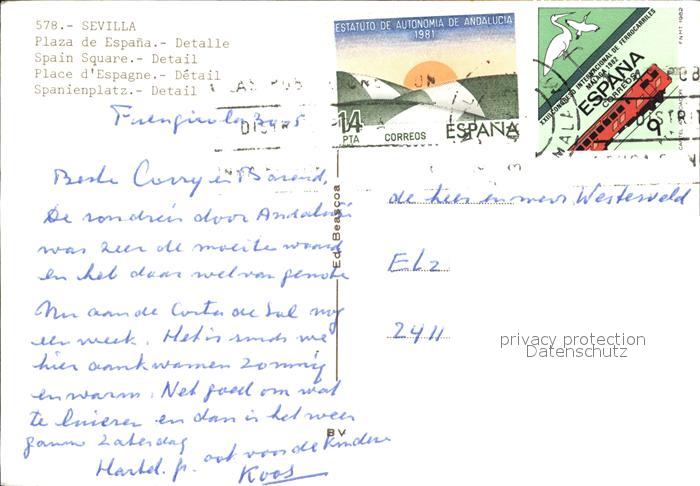 578.- SEVILLA
Plaza de España.- Detalle
Spain Square.- Detail
Place d'Espagne.- Détail
Spanienplatz.- Detail
ESTATUTO DE AUTONOMIA DE ANDALUCIA
1981
14
PTA
CORREOS
ESPAÑA
XXIII CONGRESO INTERNACIONAL DE FERROCARRILES
MALAGA 1982
ESPAÑA
CORREOS
9
F.N.M.T. 1982
MALA
DISTRI
DISTRI
Fuengirola
Beste Corry en Barend,
De rondreis door Andalusië
was zeer de moeite waard
en heb daar wel van genoten
Nu aan de Costa de Sol nog
een week. Het is sinds we
hier aankwamen zonnig
en warm. Net goed om wat
te luieren en dan is het weer
gauw Zaterdag
Hartel. gr. ook voor de kinderen
Koos
Ed. Beascoa
BV
de heer en mevr Westerveld
Elz
2411
privacy protection
Datenschutz